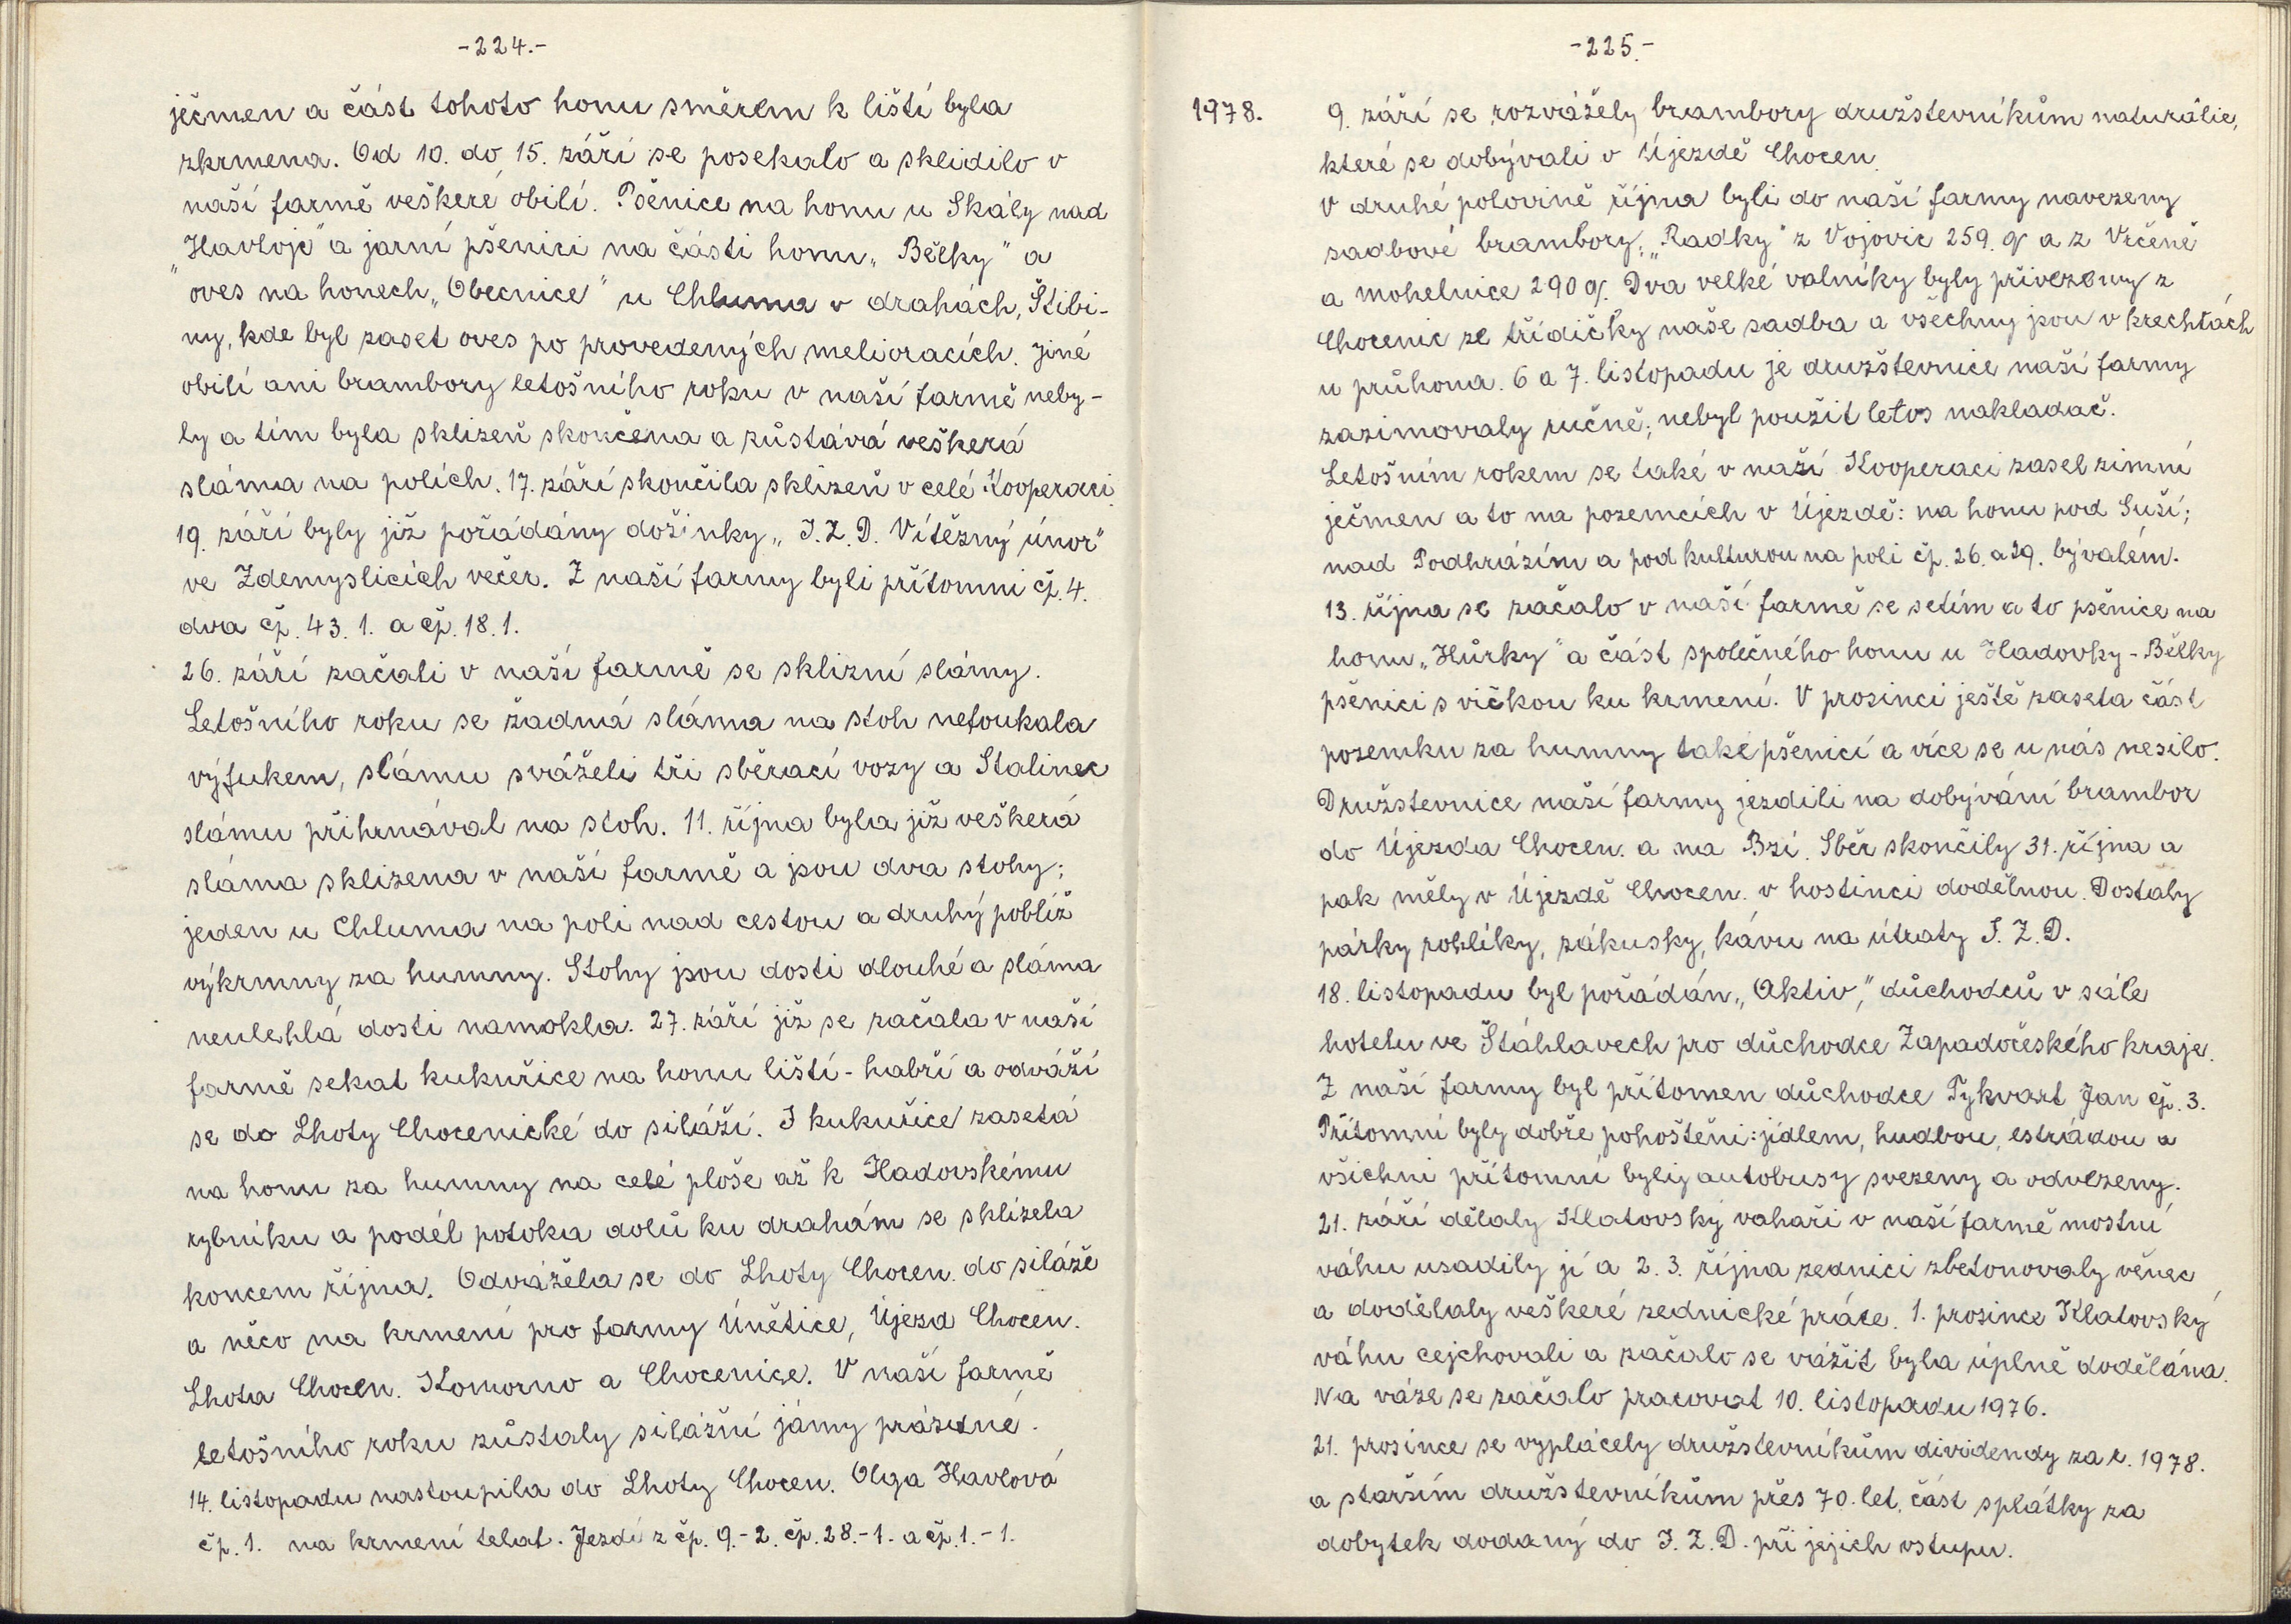 -224.-
ječmen a část tohoto honu směrem k liští byla
zkrmena. Od 10. do 15. září se posekalo a sklidilo v
naší farmě veškeré obilí. Pšenice na honu u Skály nad
„Havloje" a jarní pšenici na části honu „Bělky" a
oves na honech „Obecnice" u Chluma v drahách, Štibi-
ny, kde byl zaset oves po provedených melioracích. Jiné
obilí ani brambory letošního roku v naší farmě neby-
ly a tím byla sklizeň skončena a zůstává veškerá
sláma na polích. 17. září skončila sklizeň v celé Kooperaci.
19. září byly již pořádány dožinky „J.Z.D. Vítězný únor"
ve Zdemyslicích večer. Z naší farmy byli přítomni čp. 4.
dva čp. 43. 1. a čp. 18. 1.
26. září začali v naší farmě se sklizní slámy.
Letošního roku se žadná sláma na stoh nefoukala
výfukem, slámu sváželi tři sběrací vozy a Stalinec
slámu přihrnával na stoh. 11. října byla již veškerá
sláma sklizena v naší farmě a jsou dva stohy;
jeden u Chluma na poli nad cestou a druhý poblíž
výkrmny za humny. Stohy jsou dosti dlouhé a sláma
neulehlá dosti namokla. 27. září již se začala v naší
farmě sekat kukuřice na honu liští - habří a odváží
se do Lhoty Chocenické do siláží. I kukuřice zasetá
na honu za humny na celé ploše až k Hadovskému
rybníku a podél potoka dolů ku drahám se sklízela
koncem října. Odvážela se do Lhoty Chocen. do siláže
a něco na krmení pro farmy Únětice, Újezd Chocen.
Lhota Chocen. Komorno a Chocenice. V naší farmě
letošního roku zůstaly silážní jámy prázdné.
14. listopadu nastoupila do Lhoty Chocen. Olga Havlová
čp. 1. na krmení telat. Jezdí z čp. 9.-2. čp. 28.-1. a čp. 1.-1.
-225.-
1978. 9. září se rozvážely brambory družstevníkům naturálie,
které se dobývali v Újezdě Chocen.
V druhé polovině října byli do naší farmy navezeny
sadbové brambory: „Radky" z Vojovic 259. q a z Vrčeně
a Mohelnice 290 q. Dva velké valníky byly přivezeny z
Chocenic ze třídičky naše sadba a všechny jsou v krechtách
u průhona. 6 a 7. listopadu je družstevnice naší farmy
zazimovaly ručně; nebyl použit letos nakladač.
Letošním rokem se také v naší Kooperaci zasel zimní
ječmen a to na pozemcích v Újezdě: na honu pod Suší;
nad Podhrázím a pod kulturou na poli čp. 26. a 29. bývalém.
13. října se začalo v naší farmě se setím a to pšenice na
honu „Hůrky" a část společného honu u Hladovky - Bělky
pšenici s vičkou ku krmení. V prosinci ještě zaseta část
pozemku za humny také pšenicí a více se u nás nesilo.
Družstevnice naší farmy jezdili na dobývání brambor
do Újezda Chocen. a na Bzí. Sběr skončily 31. října a
pak měly v Újezdě Chocen. v hostinci dodělnou. Dostaly
párky rohlíky, zákusky, kávu na útraty J.Z.D.
18. listopadu byl pořádán „Aktiv," důchodců v sále
hotelu ve Štáhlavech pro důchodce Západočeského kraje.
Z naší farmy byl přítomen důchodce Tykvart Jan čp. 3.
Přítomní byly dobře pohoštěni: jídlem, hudbou, estrádou a
všichni přítomní byliy autobusy svezeny a odvezeny.
21. září dělaly Klatovský vahaři v naší farmě mostní
váhu usadily jí a 2. 3. října zedníci zbetonovaly věnec
a dodělaly veškeré zednické práce. 1. prosince Klatovský
váhu cejchovali a začalo se vážit byla úplně dodělána.
Na váze se začalo pracovat 10. listopadu 1976.
21. prosince se vyplácely družstevníkům dividendy za r. 1978.
a starším družstevníkům přes 70. let. část splátky za
dobytek dodaný do J.Z.D. při jejich vstupu.